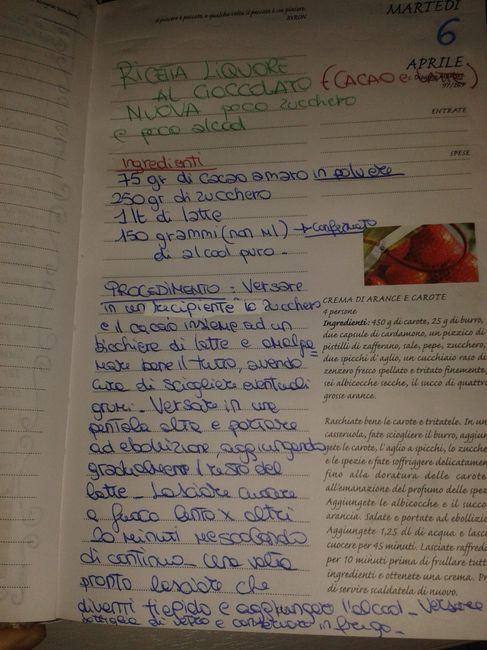 il piacere è peccato, e qualche volta il peccato è un piacere.
BYRON
MARTEDÌ
6
APRILE
97/269
ENTRATE
SPESE
RICETA LIQUORE
AL CIOCCOLATO (CACAO e
NUOVA poco zucchero
e poco alcool
Ingredienti
75 gr di cacao amaro in polvere
250 gr di zucchero
1 lt di latte
150 grammi (non ml) → confermato
di alcool puro -
PROCEDIMENTO: Versare
in un recipiente lo zucchero
e il cacao insieme ad un
bicchiere di latte e amalga=
mare bene il tutto, avendo
cura di sciogliere eventuali
grumi - Versare in una
pentola alta e portare
ad ebollizione, aggiungendo
gradualmente il resto del
latte - Lasciare cuocere
a fuoco lento x altri
20 minuti mescolando
di continuo - Una volta
pronto lasciare che
diventi tiepido e aggiungere l'alcool - Versare
bottiglia di vetro e conservare in frigo -
CREMA DI ARANCE E CAROTE
4 persone
Ingredienti: 450 g di carote, 25 g di burro,
due capsule di cardamono, un pizzico di
pistilli di zafferano, sale, pepe, zucchero,
due spicchi d'aglio, un cucchiaio raso di
zenzero fresco spellato e tritato finemente,
sei albicocche secche, il succo di quattro
grosse arance.
Raschiate bene le carote e tritatele. In un
casseruola, fate sciogliere il burro, aggiun
gete le carote, l'aglio a spicchi, lo zucche
e le spezie e fate soffriggere delicatamen
fino alla doratura delle carote
all'emanazione del profumo delle spez
Aggiungete le albicocche e il succo
arancia. Salate e portate ad ebollizio
Aggiungete 1,25 dl di acqua e lasc
cuocere per 45 minuti. Lasciate raffred
per 10 minuti prima di frullare tutt
ingredienti e ottenete una crema. Pr
di servire scaldatela di nuovo.